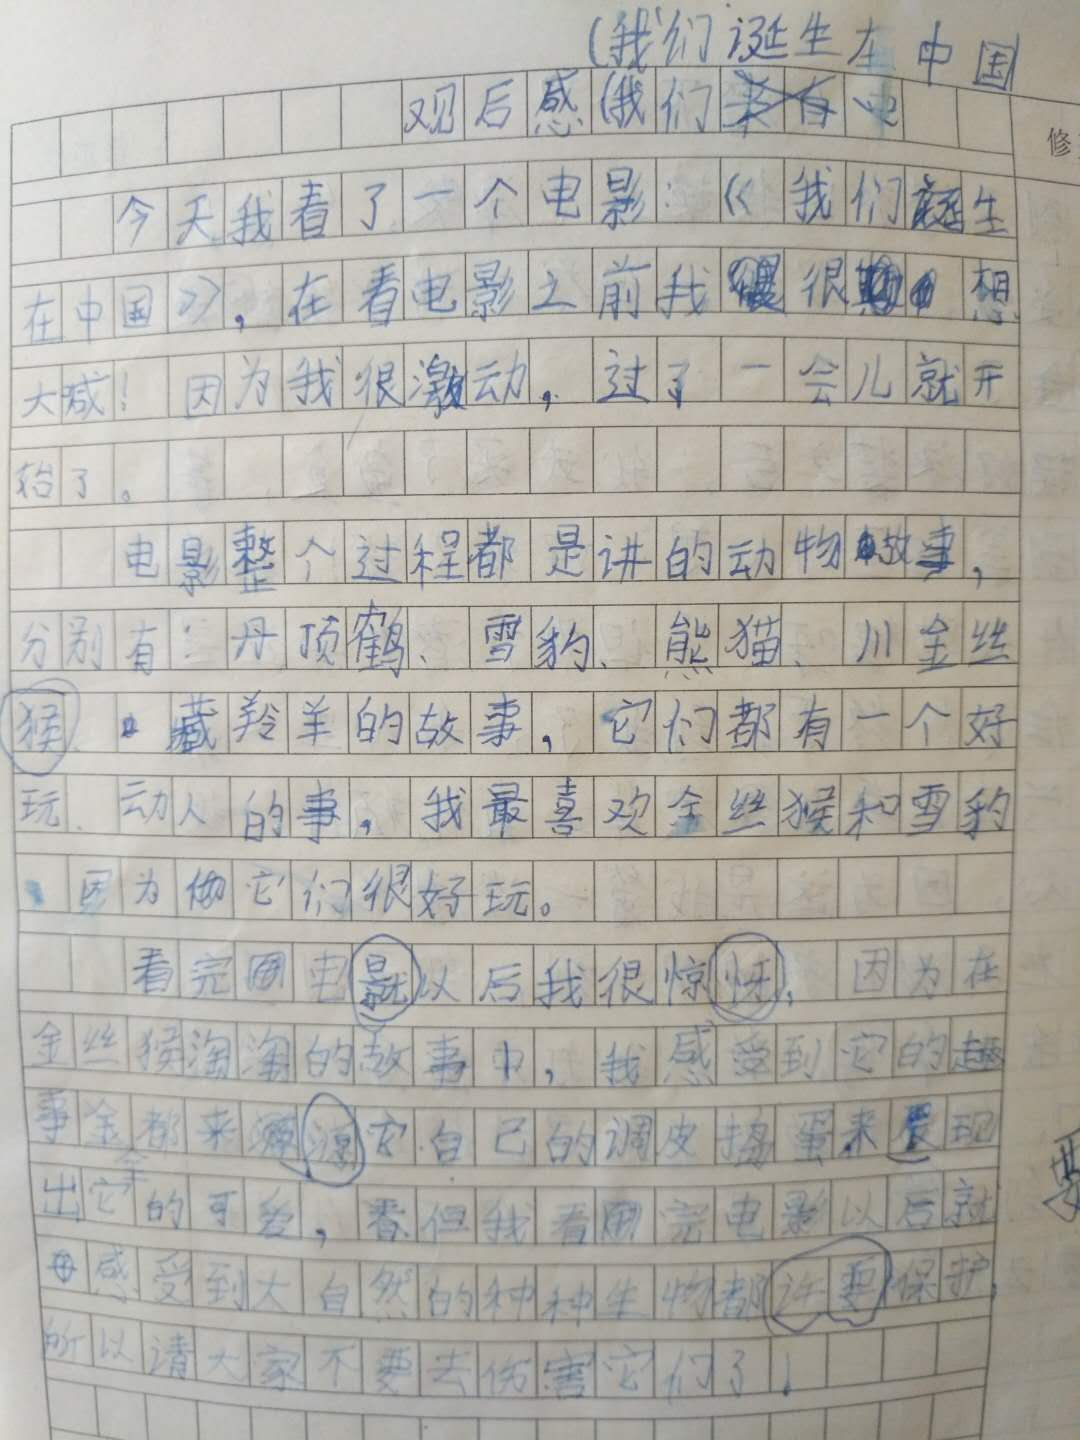 (我们诞生在中国
观后感(我们
修
今天我看了一个电影:《我们诞生
在中国》,在看电影之前我很想
大喊!因为我很激动,过了一会儿就开
始了。
电影整个过程都是讲的动物故事,
分别有:丹顶鹤、雪豹、熊猫、川金丝
猴、藏羚羊的故事,它们都有一个好
玩、动人的事,我最喜欢金丝猴和雪豹
,因为它们很好玩。
看完电影以后我很惊讶,因为在
金丝猴淘淘的故事中,我感受到它的趣
事全都来源它自己的调皮捣蛋来展现
出它的可爱,但我看完电影以后就
感受到大自然的种种生物都许要保护,
所以请大家不要去伤害它们了!
要